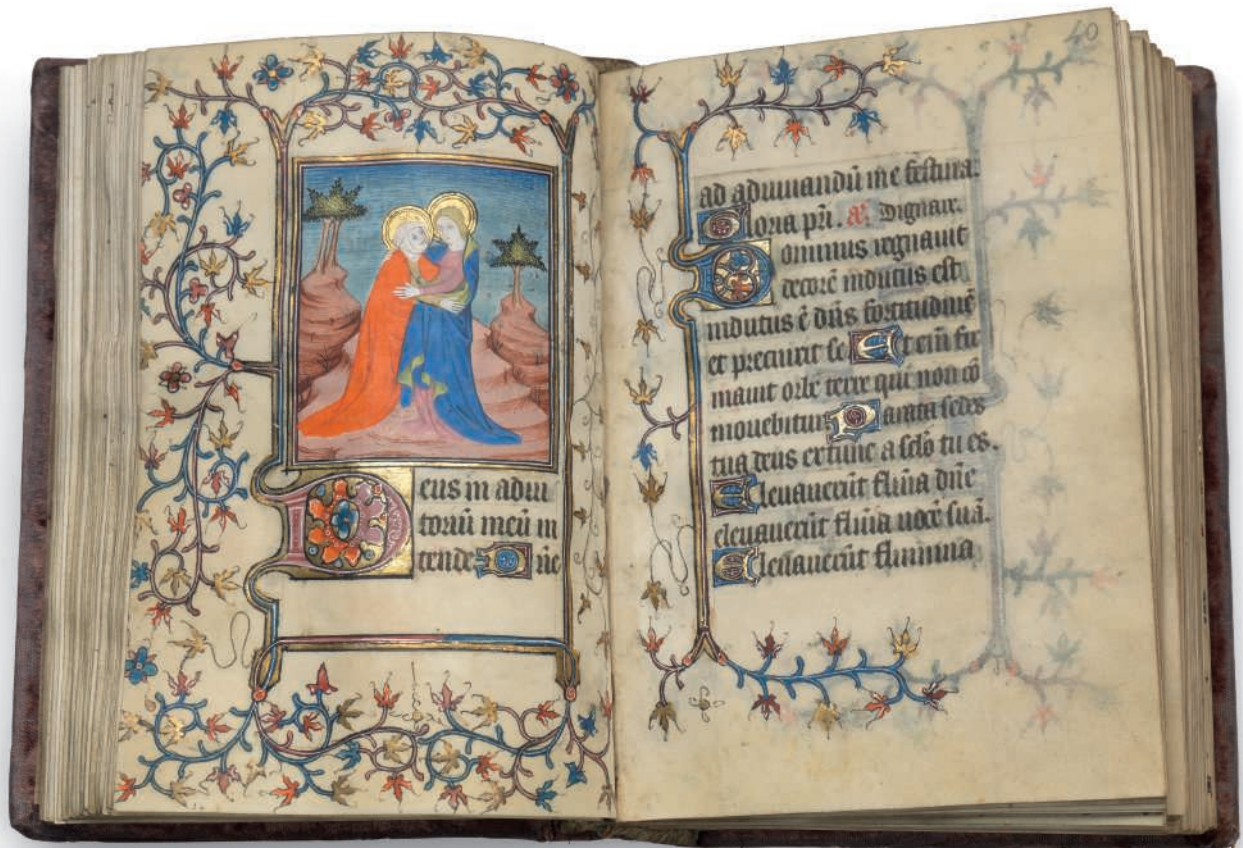 Deus in adiu
toriū meū in
tende: Dn̄e
40
ad adiuuandū me festina.
Gloria pr̄i. an̄. Dignare.
Dominus regnauit
decorē indutus est
indutus ē dn̄s fortitudinē
et precinxit se Et enī fir
mauit orbē terre qui non cō
mouebitur: Parata sedes
tua deus ex tunc a sclō tu es.
Eleuauerūt flūia dn̄e
eleuauerūt flūia uocē suā.
Eleuauerūt flumina